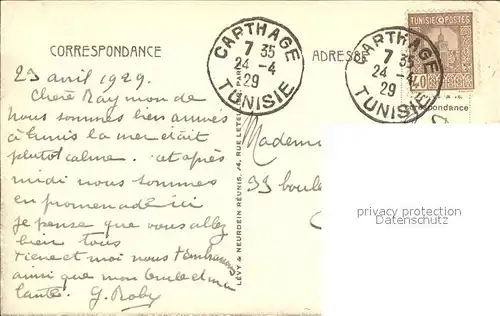 CORRESPONDANCE
ADRESSE
CARTHAGE
7 35
24 - 4
29
TUNISIE
CARTHAGE
7 35
24 - 4
29
TUNISIE
TUNISIE POSTES
correspondance
23 avril 1929.
Chère Raymonde
nous sommes bien arrivés
à Tunis la mer était
plutot calme. cet après
midi nous sommes
en promenade ici
je pense que vous allez
bien tous
et moi nous t'embrassons
ainsi que mon oncle et ma
tante. G. Roby
LÉVY & NEURDEIN RÉUNIS, 44, RUE LETEL
Madem
33 boule
privacy protection
Datenschutz